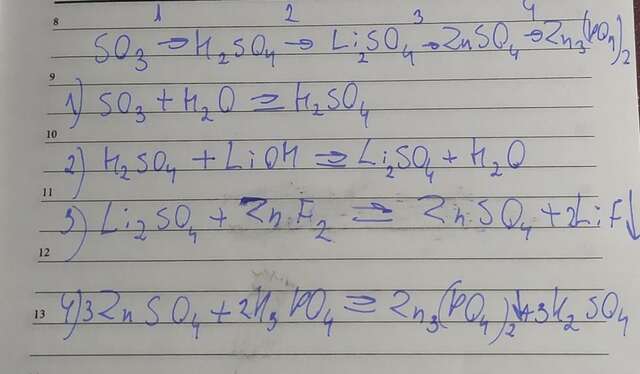 8 1 2 3 4
SO₃ → H₂SO₄ → Li₂SO₄ → ZnSO₄ → Zn₃(PO₄)₂
9
1) SO₃ + H₂O = H₂SO₄
10
2) H₂SO₄ + LiOH = Li₂SO₄ + H₂O
11
3) Li₂SO₄ + ZnF₂ = ZnSO₄ + 2LiF↓
12
13 4) 3ZnSO₄ + 2H₃PO₄ = Zn₃(PO₄)₂↓ + 3H₂SO₄